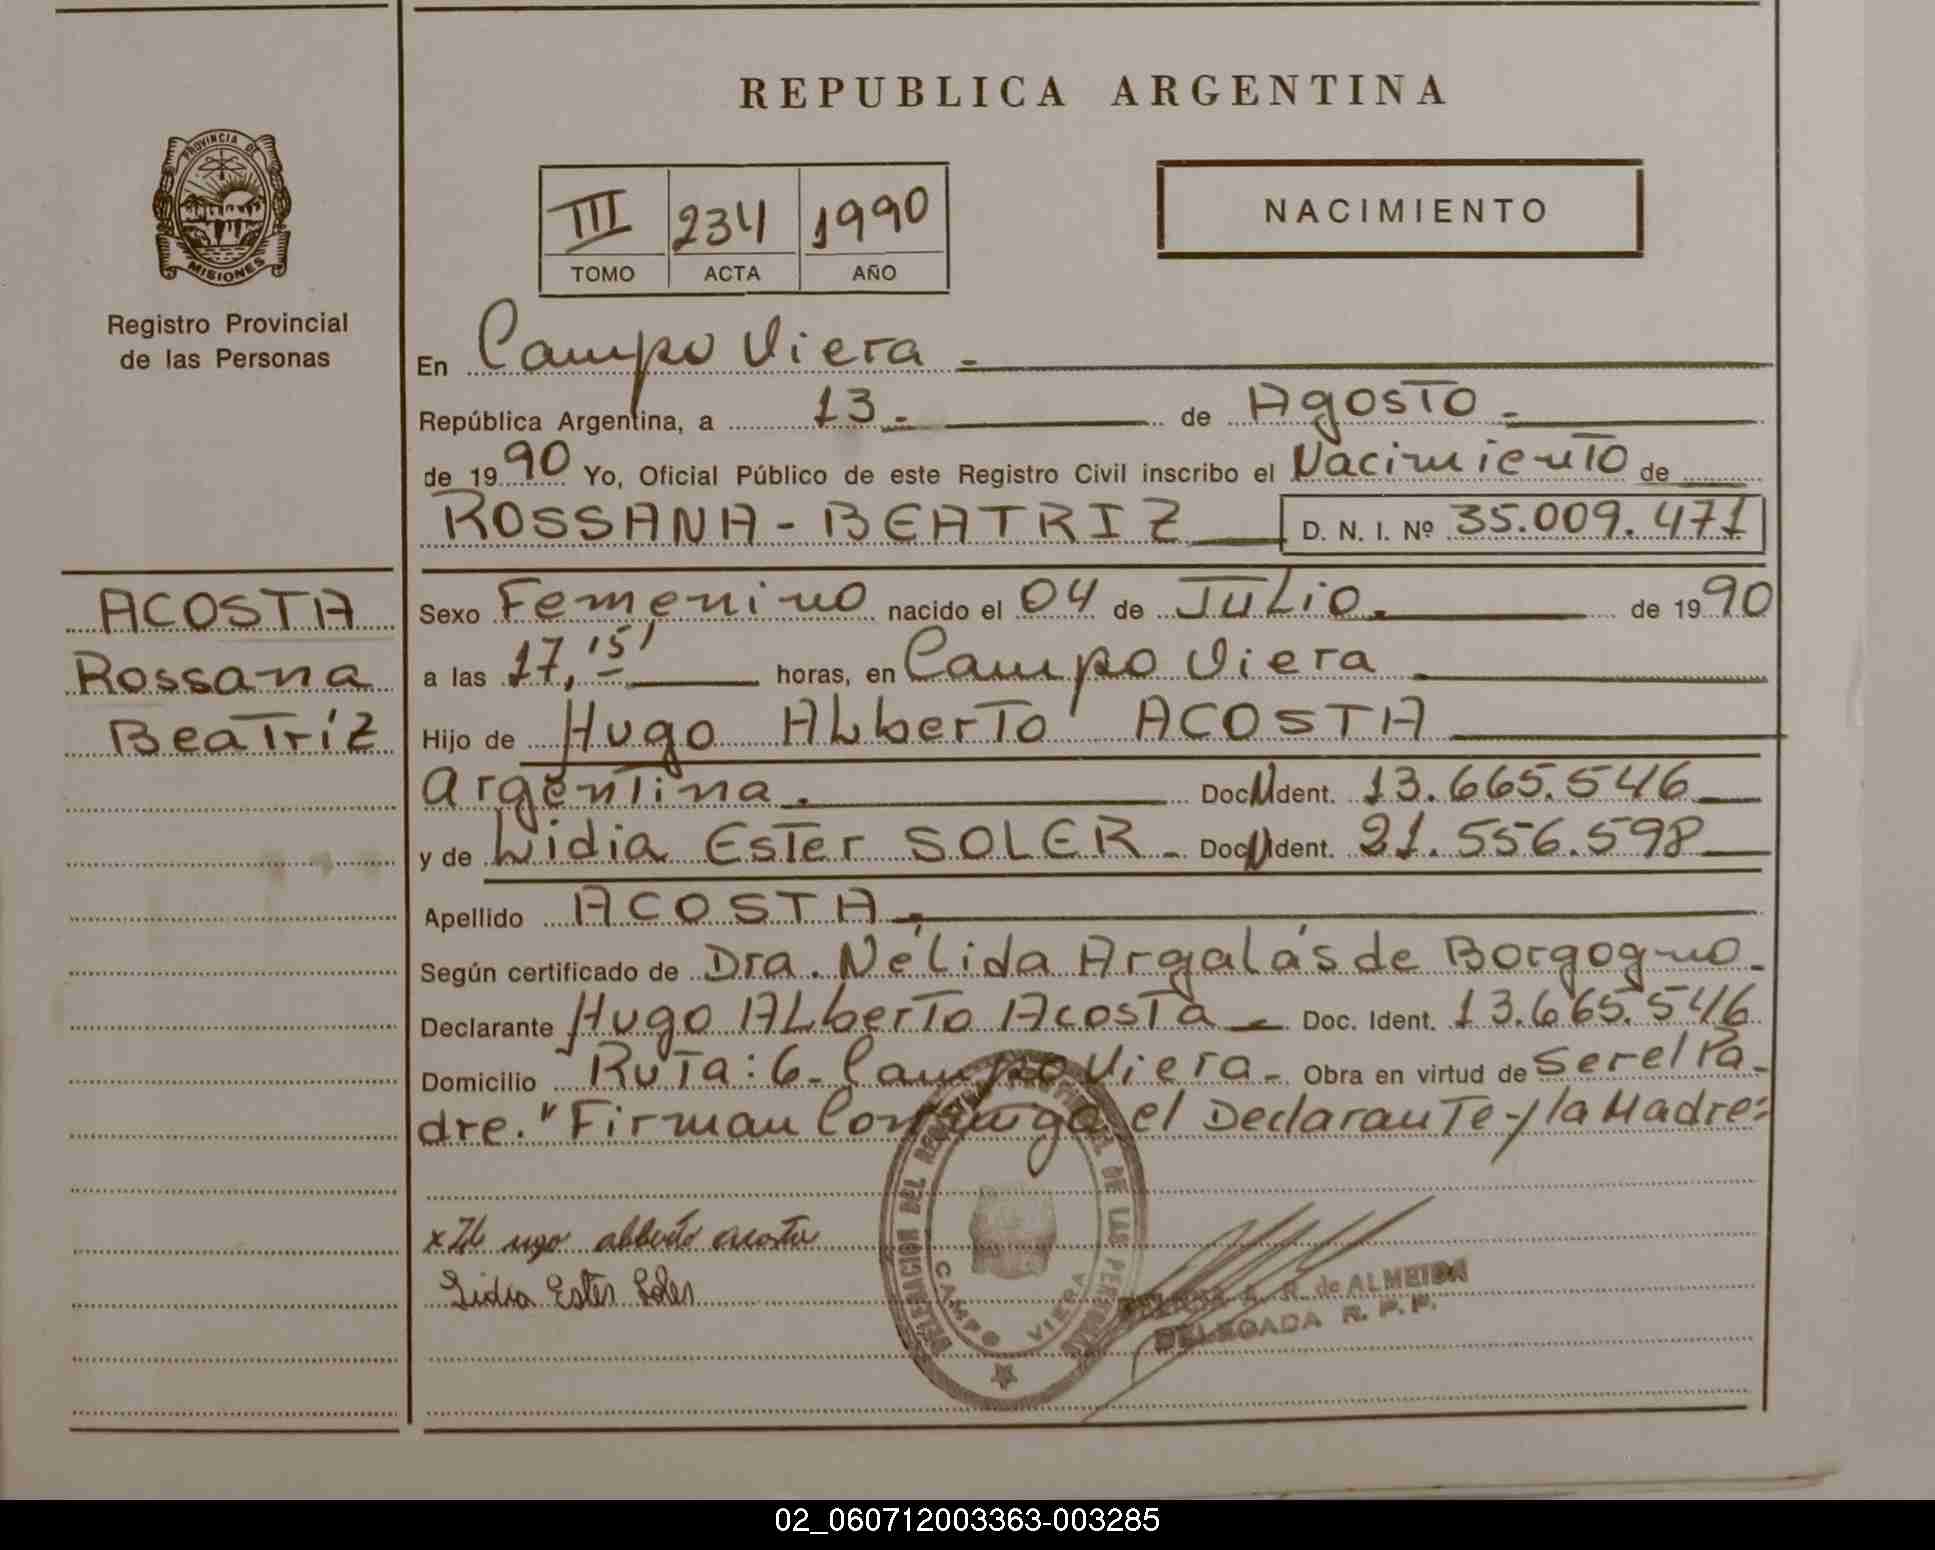 REPUBLICA ARGENTINA
PROVINCIA DE
MISIONES
Registro Provincial
de las Personas
III 234 1990
TOMO ACTA AÑO
NACIMIENTO
En Campo Viera.
República Argentina, a 13. de Agosto.
de 1990 Yo, Oficial Público de este Registro Civil inscribo el Nacimiento de
ROSSANA-BEATRIZ D. N. I. Nº 35.009.471
ACOSTA
Rossana
Beatríz
Sexo Femenino nacido el 04 de Julio. de 1990
a las 17,15' horas, en Campo Viera
Hijo de Hugo Alberto ACOSTA
argentina. Doc. Ident. 13.665.546
y de Lidia Ester SOLER. Doc. Ident. 21.556.598
Apellido ACOSTA.
Según certificado de Dra. Nélida Argalás de Borgogno.
Declarante Hugo Alberto Acosta Doc. Ident. 13.665.546
Domicilio Ruta: 6- Campo Viera- Obra en virtud de Ser el Pa-
dre. "Firman Conmigo el Declarante y la Madre:
x Hugo alberto acosta
Lidia Ester Soler
DELEGACION DEL DE LAS
CAMPO VIERA
de ALMEIDA
DELEGADA R. P. P.
02_060712003363-003285